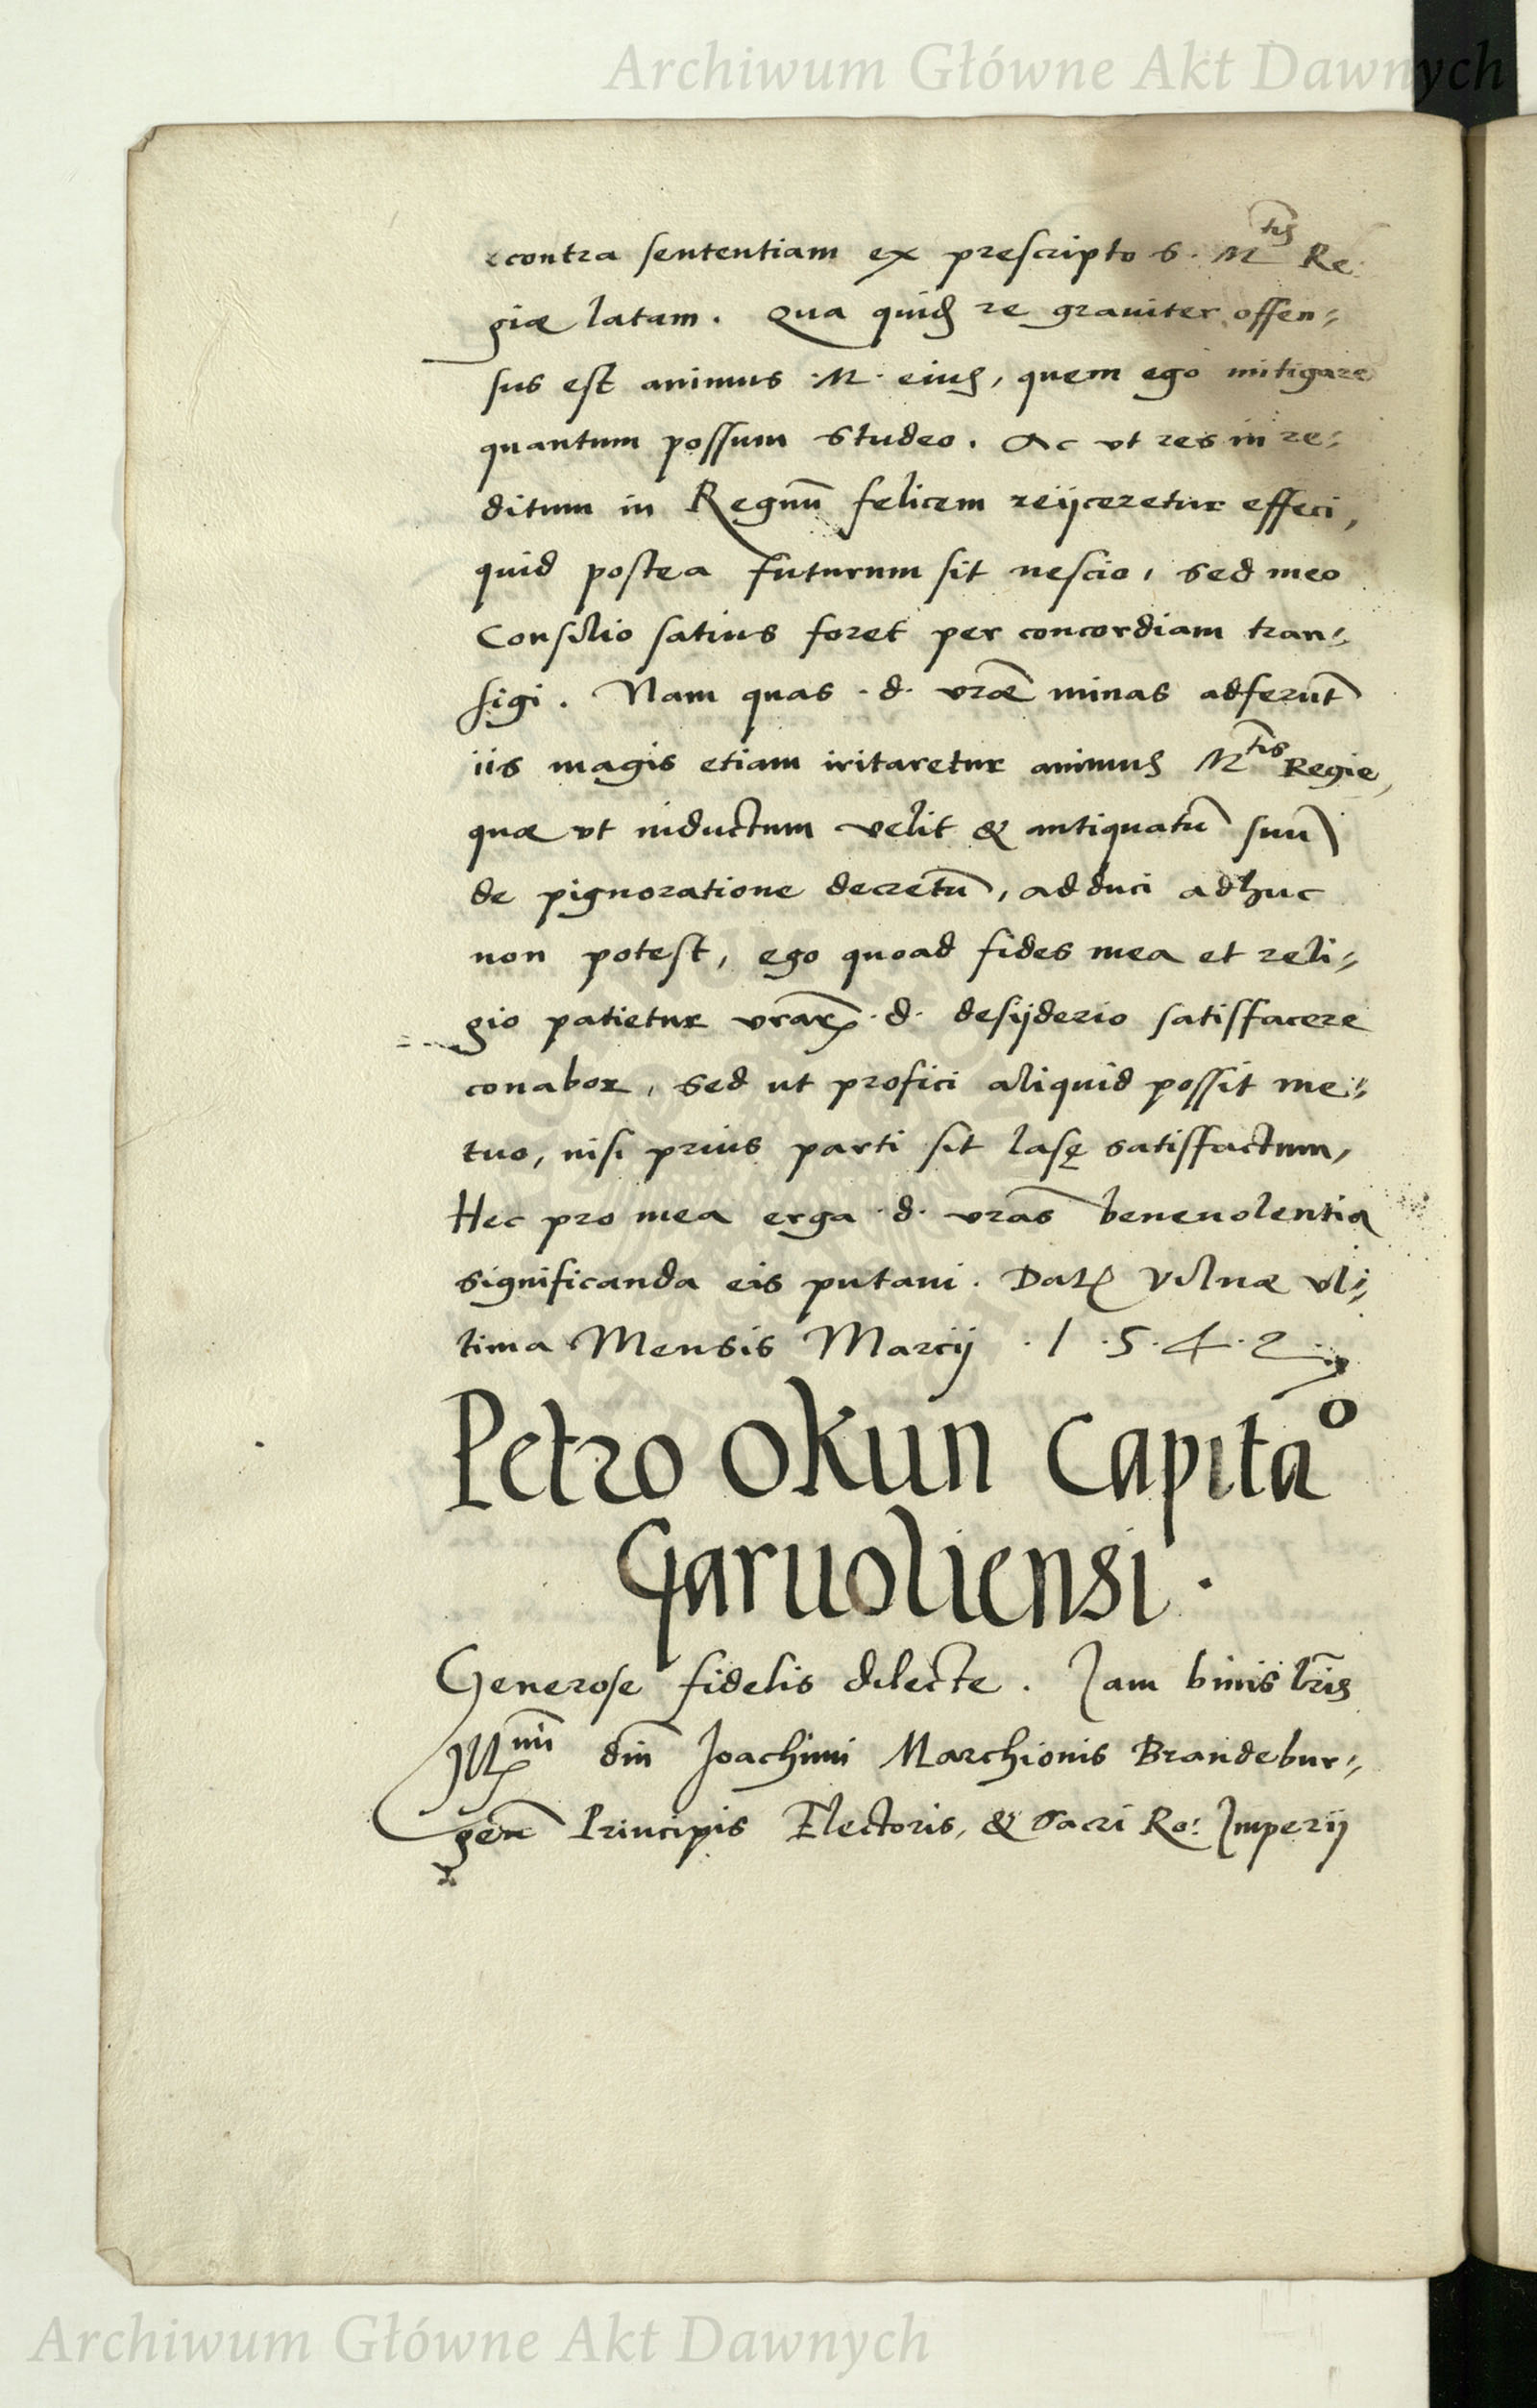 Archiwum Główne Akt Dawnych
contra sententiam ex prescripto S. M^tis Re:
giæ latam. Qua quidē re grauiter offen:
sus est animus .M. eius, quem ego mitigare
quantum possum studeo. Ac ut res in re:
ditum in Regnū felicem reijceretur effeci,
quid postea futurum sit nescio, sed meo
Consilio satius foret per concordiam tran:
sigi. Nam quas .d. vr̄æ minas adferūt
iis magis etiam irritaretur animus M^tis Regie,
quæ vt inductum velit & antiquatū suū
de pignoratione decretū, adduci adhuc
non potest, ego quoad fides mea et reli:
gio patietur vr̄arꝫ .d. desijderio satisfacere
conabor, sed ut profici aliquid possit me:
tuo, nisi prius parti sit lasę satisfactum,
Hec pro mea erga .d. vr̄as beneuolentia
significanda eis putaui. Datꝫ Vilnæ vl:
tima Mensis Marcij .1.5.4.2.
Petro Okun Capita^o
Garuoliensi.
Generose fidelis dilecte. Jam binis lr̄is
Ill^mi dn̄i Joachimi Marchionis Brandebur:
gen̄ Principis Electoris, & Sacri Ro: Imperij
Archiwum Główne Akt Dawnych